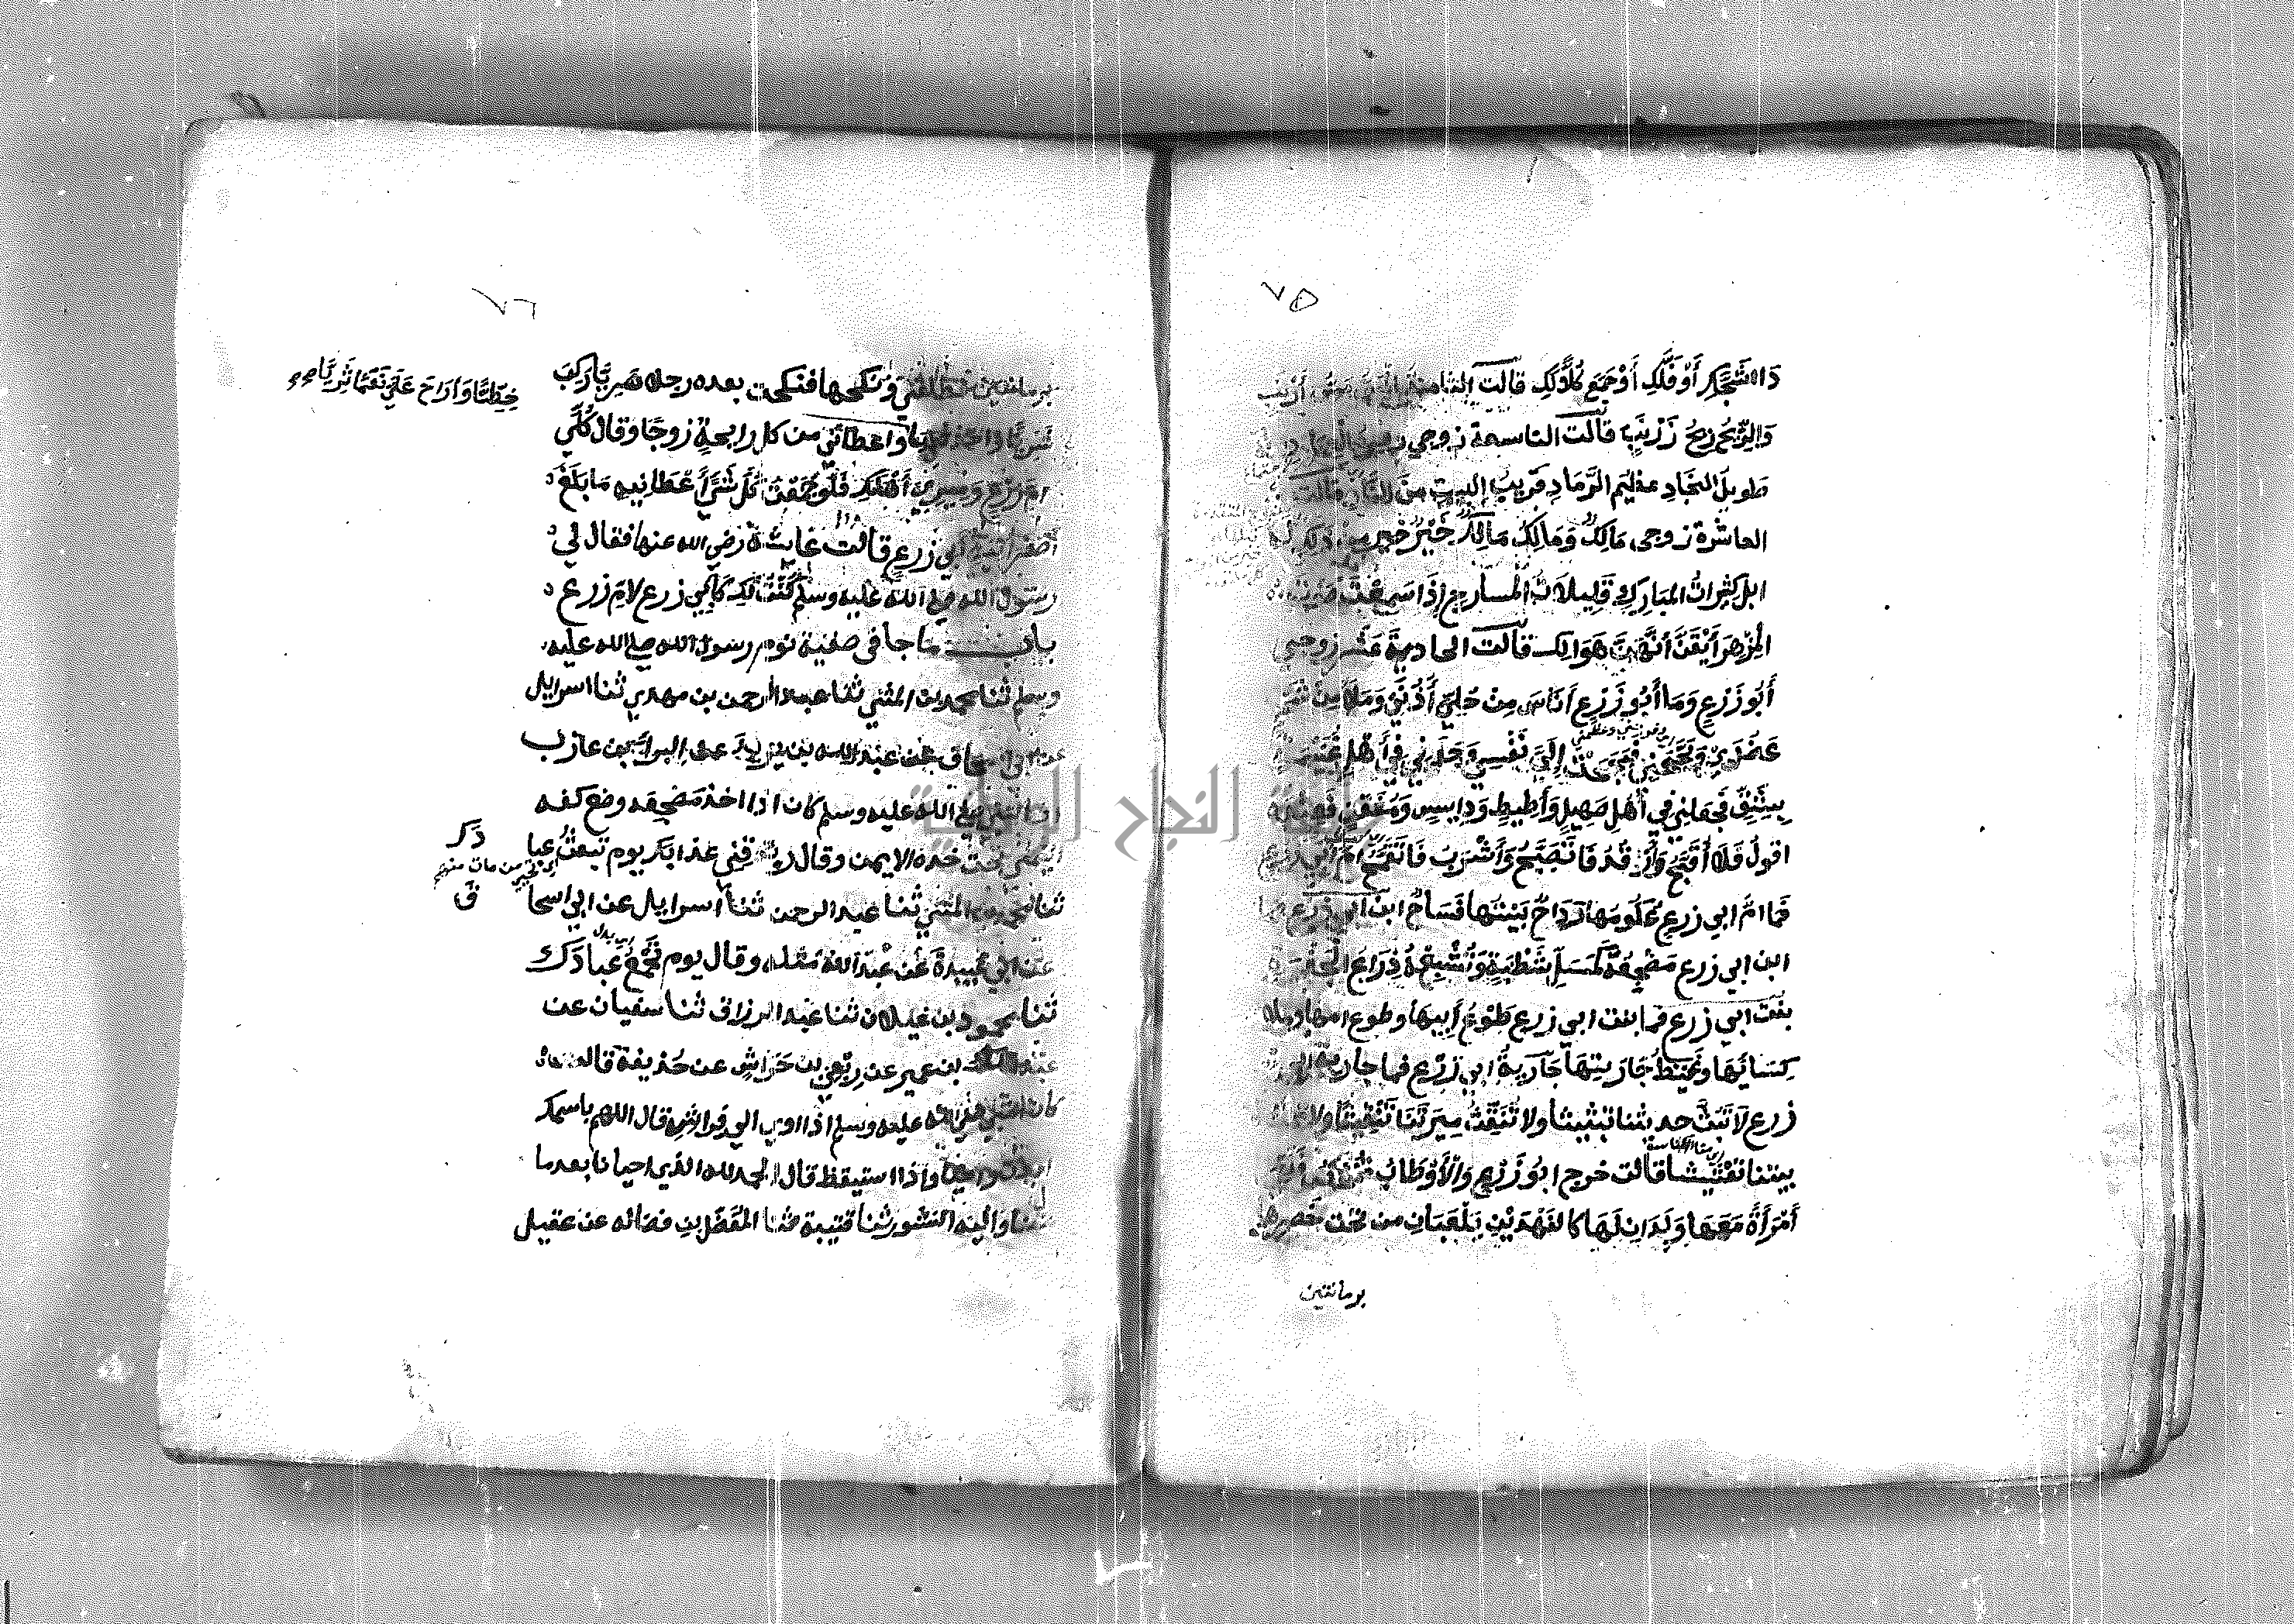 ٧٥
دَاءٍ شَجَّكِ أَوْ فَلَّكِ أَوْ جَمَعَ كُلًّا لَكِ قالت الثامنة زوجي المس مس أرنب
وَالرِّيحُ رِيحُ زَرْنَبٍ قالت التاسعة زوجي رفيع العماد
طويل النجادِ عظيم الرَّمَادِ قريبُ البيتِ مِنَ النَّادِ قالت
العاشرة زوجي مَالِكٌ وَمَا لِكٌ مَالِكٌ خَيْرٌ مِن ذلك له
ابل كثيراتُ المبَارِكِ قَلِيلاَتُ المسارِحِ إِذَا سَمِعْنَ صَوْتَ
المِزْهَرِ أَيْقَنَّ أَنَّهُنَّ هَوَالِك قالت الحادية عَشَر زوجي
أَبُو زَرْعٍ وَمَا أَبُو زَرْعٍ أَنَاسَ مِنْ حُلِيٍّ أُذُنَيَّ وَمَلَأَ مِنْ شَحْمٍ
عَضُدَيَّ وَبَجَّحَنِي فَبَجَحَتْ إِلَيَّ نَفْسِي وَجَدَنِي فِي أَهْلِ غُنَيْمَةٍ
بِشِقٍّ فجعلني في أَهْلِ صَهِيلٍ وَأَطِيطٍ وَدَايِسٍ وَمُنَقٍّ فَعِنْدَهُ
اقولُ فَلاَ أُقَبَّحُ وَأَرْقُدُ فَأَتَصَبَّحُ وَأَشْرَبُ فَأَتَقَمَّحُ أمّ ابي زرع
فما امّ ابي زرعٍ عُكُومُهَا رَدَاحٌ وَبَيْتُهَا فَسَاحٌ ابن ابي زرع فما
ابن ابي زرع مَضْجِعُهُ كَمَسَلِّ شَطْبَةٍ وَتُشْبِعُهُ ذِرَاعُ الجَفْرَةِ
بنت ابي زرع فما بنت ابي زرع طَوْعُ أبيها وطوع امها وملا
كِسَائِهَا وَغَيْظُ جَارَتِهَا جَارِيةُ ابي زرع فما جارية ابي
زرع لا تَبُثُّ حديثنا تبثيثا ولا تُنَقِّثُ مِيرَتَنَا تَنْقِيثًا ولا تملا
بيتنا تَعْشِيشا قالت خرج ابو زَرْعٍ وَالأَوْطَابُ تُمْخَضُ فلقي
أمْرَأةً مَعَهَا وَلَدَانِ لَهَا كالفَهْدَيْنِ يَلْعَبَانِ من تحت خصرها
برمانتين
٧٦
برمانتين فطلقني وَنكحها فنكحت بعده رجلا سَرِيًّا رَكِبَ
شَرِيًّا واخذ خَطِّيًّا وَأَرَاحَ عَلَيَّ نَعَمًا ثَرِيًّا صح
واعطاني من كل رايحةٍ زوجًا وقال كُلِي
ام زرع وميري أهْلَكِ فَلَوْ جَمَعْتُ كُلَّ شَيْءٍ أَعْطَانِيهِ مَا بَلَغَ
أصغر انية ابي زرع قالت عايشة رضي الله عنها فقال لي
رسول الله صلى الله عليه وسلم كُنْتُ لَكِ كَأبِي زرع لامّ زرع
باب ما جا في صفة نوم رسول الله صلى الله عليه
وسلم ثنا محمد بن المثنى ثنا عبد الرحمن بن مهدي ثنا اسرايل
عن ابي اسحاق عن عبد الله بن يزيد عن البراء بن عازب
ان النبي صلى الله عليه وسلم كان اذا اخذ مضجعه وضع كفه
اليمنى تحت خده الايمن وقال رب قني عذابك يوم تبعث عبا
دَك
ثنا محمد بن المثنى ثنا عبد الرحمن ثنا اسرايل عن ابي اسحا
ق
عن ابي عبيدة عن عبد الله مثله وقال يوم تجمع عبادَك
ثنا محمود بن غيلان ثنا عبد الرزاق ثنا سفيان عن
عبد الملك بن عمير عن رِبْعِي بن حَرَاشٍ عن حُذيفة قال
كان النبي صلى الله عليه وسلم اذا اوى الى فراشه قال اللهم باسمك
اموت واحيا واذا استيقظ قال الحمد لله الذي احيانا بعد ما
اماتنا واليه النشور ثنا قتيبة ثنا المفضل بن فضاله عن عقيل